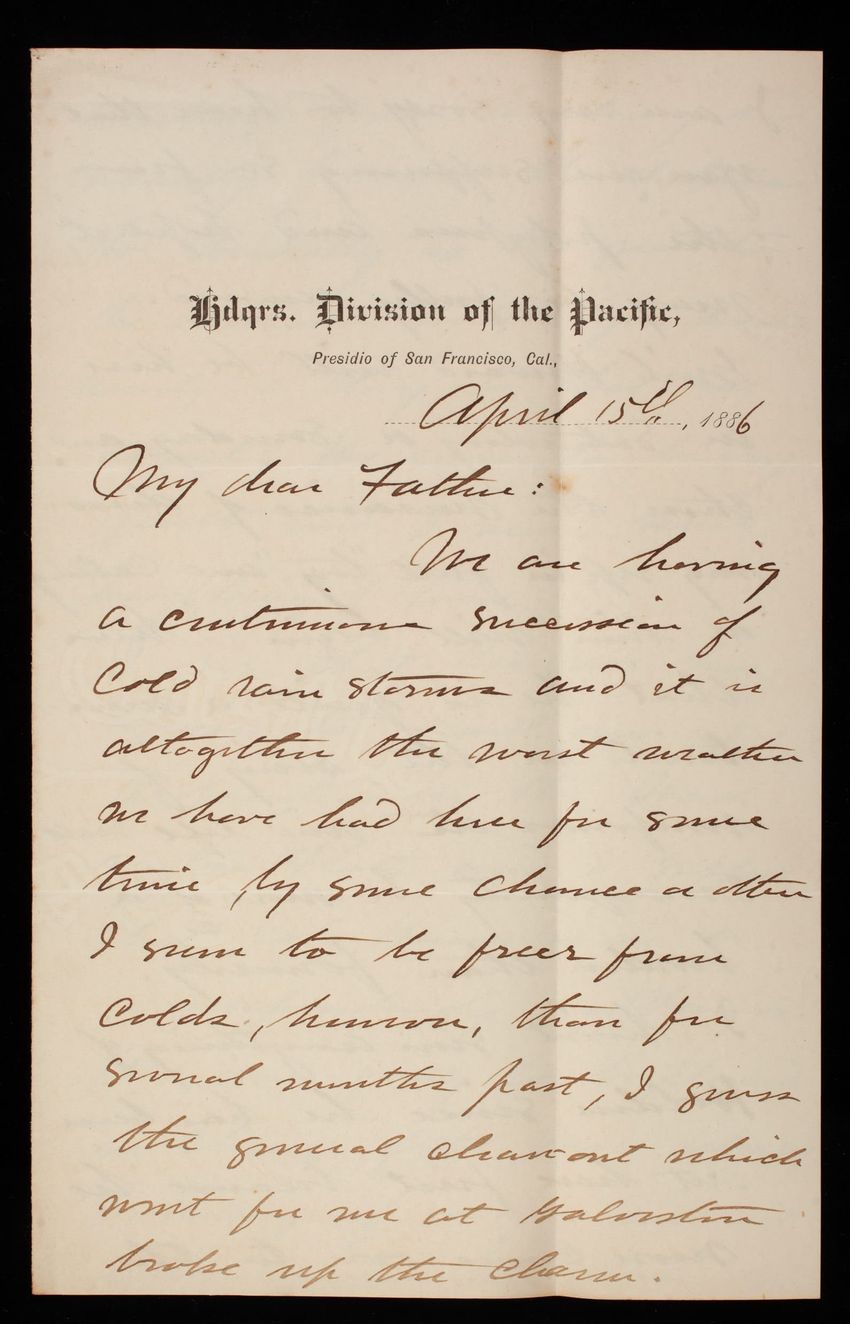 Hdqrs. Division of the Pacific,
Presidio of San Francisco, Cal.,
April 15th, 1886
My dear Father:
We are having
a continuous succession of
cold rain storms and it is
altogether the worst weather
we have had here for some
time, by some chance or other
I seem to be freer from
colds, however, than for
several months past, I guess
the general clean out which
went for me at Galveston
broke up the charm.